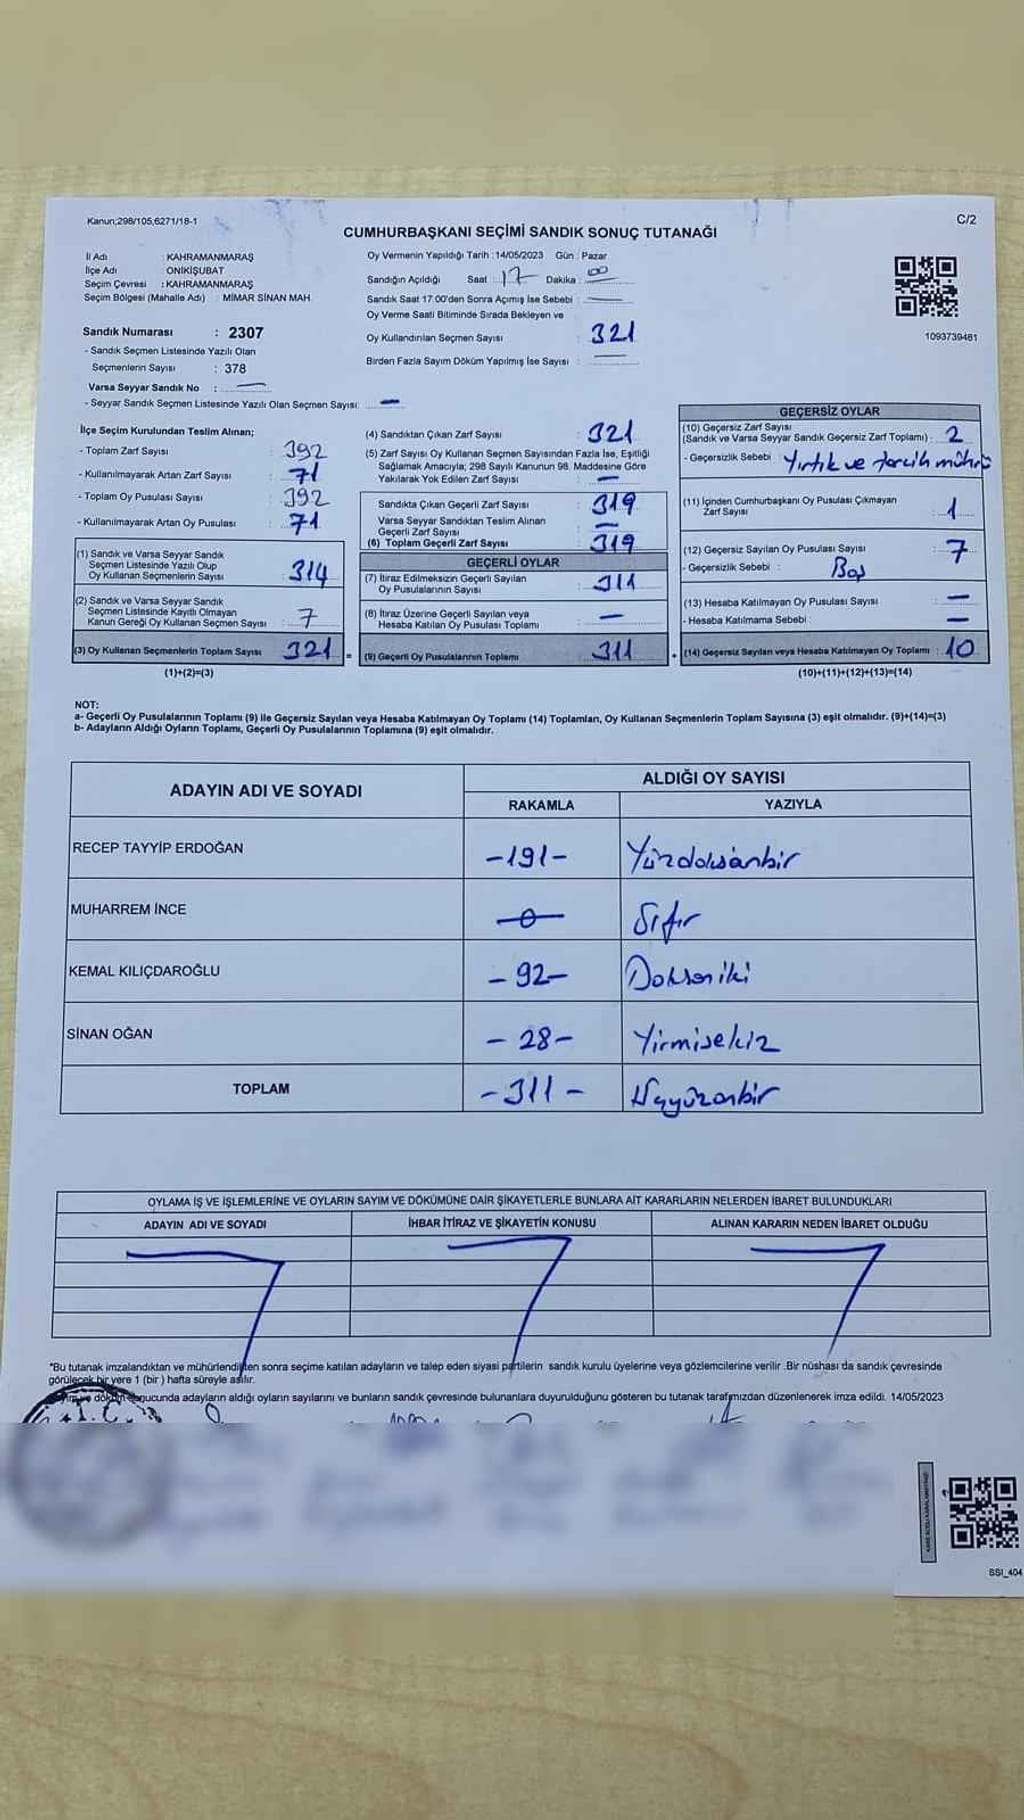 Kanun;298/105,6271/18-1
C/2
CUMHURBAŞKANI SEÇİMİ SANDIK SONUÇ TUTANAĞI
İl Adı : KAHRAMANMARAŞ
İlçe Adı : ONİKİŞUBAT
Seçim Çevresi : KAHRAMANMARAŞ
Seçim Bölgesi (Mahalle Adı) : MİMAR SİNAN MAH.
Sandık Numarası : 2307
- Sandık Seçmen Listesinde Yazılı Olan
Seçmenlerin Sayısı : 378
Varsa Seyyar Sandık No : —
- Seyyar Sandık Seçmen Listesinde Yazılı Olan Seçmen Sayısı: —
Oy Vermenin Yapıldığı Tarih : 14/05/2023 Gün : Pazar
Sandığın Açıldığı Saat : 17 Dakika : 00
Sandık Saat 17:00'den Sonra Açımış İse Sebebi : —
Oy Verme Saati Bitiminde Sırada Bekleyen ve
Oy Kullandırılan Seçmen Sayısı : 321
Birden Fazla Sayım Döküm Yapılmış İse Sayısı : —
1093739481
İlçe Seçim Kurulundan Teslim Alınan;
- Toplam Zarf Sayısı : 392
- Kullanılmayarak Artan Zarf Sayısı : 71
- Toplam Oy Pusulası Sayısı : 392
- Kullanılmayarak Artan Oy Pusulası : 71
(1) Sandık ve Varsa Seyyar Sandık
Seçmen Listesinde Yazılı Olup
Oy Kullanan Seçmenlerin Sayısı : 314
(2) Sandık ve Varsa Seyyar Sandık
Seçmen Listesinde Kayıtlı Olmayan
Kanun Gereği Oy Kullanan Seçmen Sayısı : 7
(3) Oy Kullanan Seçmenlerin Toplam Sayısı : 321 =
(1)+(2)=(3)
(4) Sandıktan Çıkan Zarf Sayısı : 321
(5) Zarf Sayısı Oy Kullanan Seçmen Sayısından Fazla İse, Eşitliği
Sağlamak Amacıyla; 298 Sayılı Kanunun 98. Maddesine Göre
Yakılarak Yok Edilen Zarf Sayısı : —
Sandıkta Çıkan Geçerli Zarf Sayısı : 319
Varsa Seyyar Sandıktan Teslim Alınan
Geçerli Zarf Sayısı : —
(6) Toplam Geçerli Zarf Sayısı : 319
GEÇERLİ OYLAR
(7) İtiraz Edilmeksizin Geçerli Sayılan
Oy Pusulalarının Sayısı : 311
(8) İtiraz Üzerine Geçerli Sayılan veya
Hesaba Katılan Oy Pusulası Toplamı : —
(9) Geçerli Oy Pusulalarının Toplamı : 311 +
GEÇERSİZ OYLAR
(10) Geçersiz Zarf Sayısı
(Sandık ve Varsa Seyyar Sandık Geçersiz Zarf Toplamı) : 2
- Geçersizlik Sebebi : Yırtık ve tercih mührü
(11) İçinden Cumhurbaşkanı Oy Pusulası Çıkmayan
Zarf Sayısı : 1
(12) Geçersiz Sayılan Oy Pusulası Sayısı : 7
- Geçersizlik Sebebi : Boş
(13) Hesaba Katılmayan Oy Pusulası Sayısı : —
- Hesaba Katılmama Sebebi : —
(14) Geçersiz Sayılan veya Hesaba Katılmayan Oy Toplamı : 10
(10)+(11)+(12)+(13)=(14)
NOT:
a- Geçerli Oy Pusulalarının Toplamı (9) ile Geçersiz Sayılan veya Hesaba Katılmayan Oy Toplamı (14) Toplamları, Oy Kullanan Seçmenlerin Toplam Sayısına (3) eşit olmalıdır. (9)+(14)=(3)
b- Adayların Aldığı Oyların Toplamı, Geçerli Oy Pusulalarının Toplamına (9) eşit olmalıdır.
ADAYIN ADI VE SOYADI ALDIĞI OY SAYISI
RAKAMLA YAZIYLA
RECEP TAYYİP ERDOĞAN -191- Yüzdoksanbir
MUHARREM İNCE -0- Sıfır
KEMAL KILIÇDAROĞLU -92- Doksaniki
SİNAN OĞAN -28- Yirmisekiz
TOPLAM -311- Üçyüzonbir
OYLAMA İŞ VE İŞLEMLERİNE VE OYLARIN SAYIM VE DÖKÜMÜNE DAİR ŞİKAYETLERLE BUNLARA AİT KARARLARIN NELERDEN İBARET BULUNDUKLARI
ADAYIN ADI VE SOYADI İHBAR İTİRAZ VE ŞİKAYETİN KONUSU ALINAN KARARIN NEDEN İBARET OLDUĞU
*Bu tutanak imzalandıktan ve mühürlendikten sonra seçime katılan adayların ve talep eden siyasi partilerin sandık kurulu üyelerine veya gözlemcilerine verilir .Bir nüshası da sandık çevresinde
görülecek bir yere 1 (bir ) hafta süreyle asılır.
döküm sonucunda adayların aldığı oyların sayılarını ve bunların sandık çevresinde bulunanlara duyurulduğunu gösteren bu tutanak tarafımızdan düzenlenerek imza edildi. 14/05/2023
T.C.
SSI_404